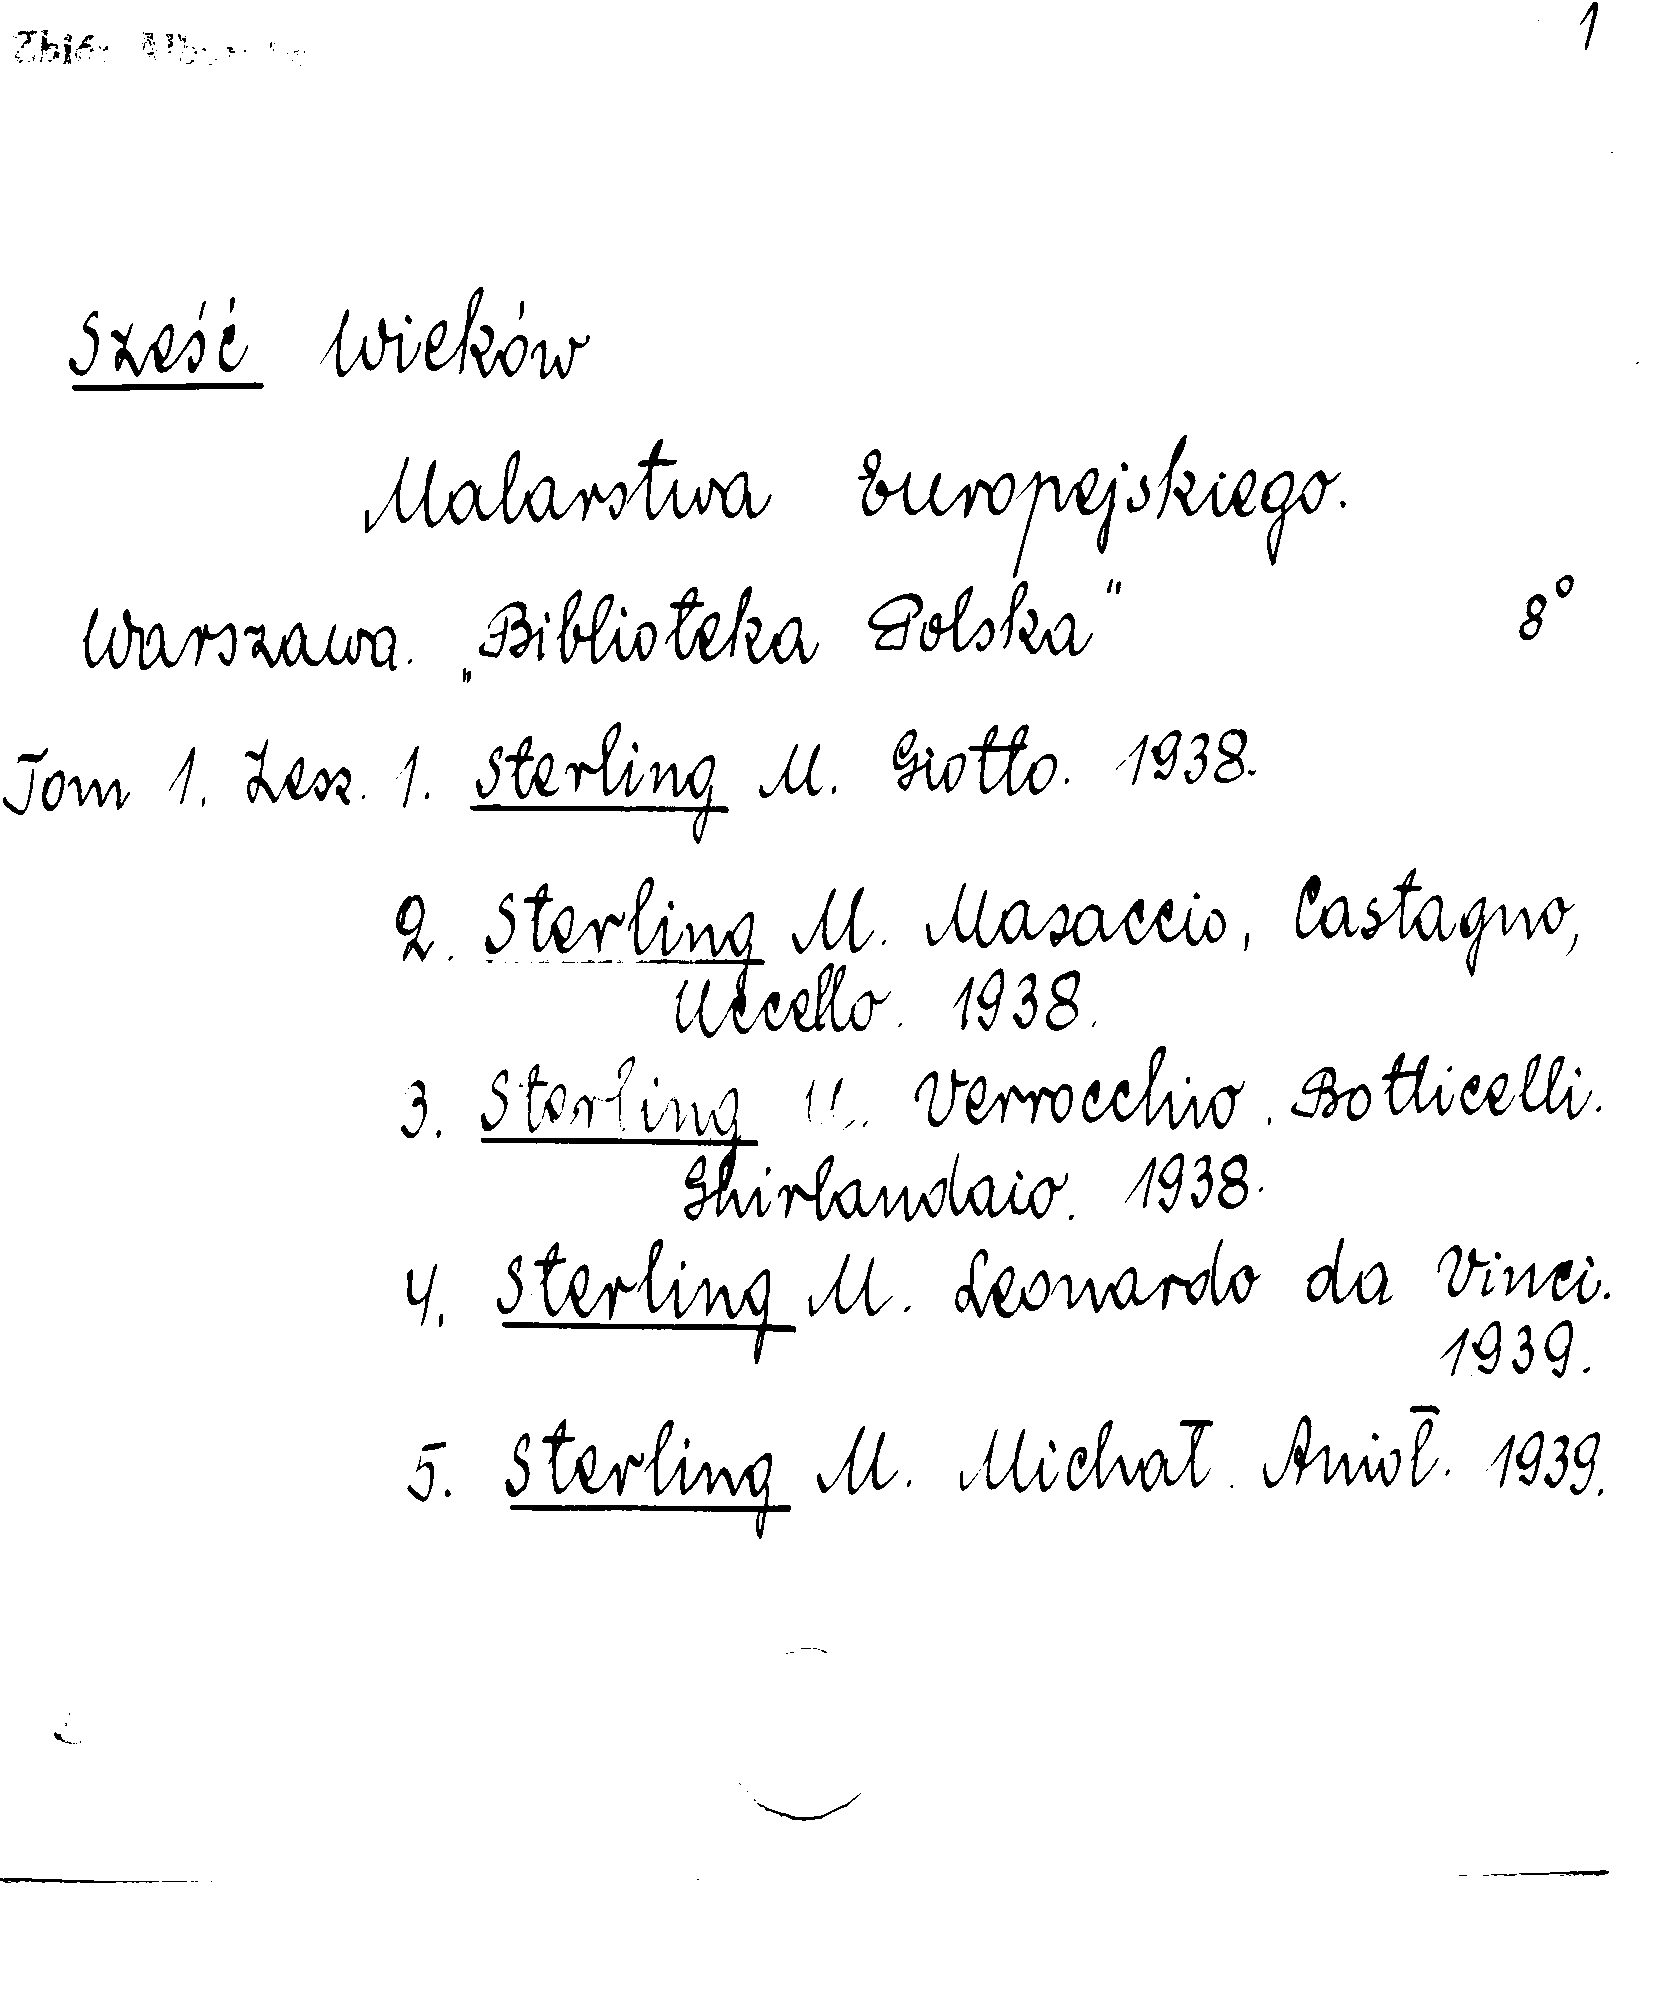 Zbiór 1
Sześć Wieków
Malarstwa Europejskiego.
Warszawa. „Biblioteka Polska" 8°
Tom 1. Zesz. 1. Sterling M. Giotto. 1938.
2. Sterling M. Masaccio, Castagno,
Uccello. 1938.
3. Sterling M. Verrocchio. Botticelli.
Ghirlandaio. 1938.
4. Sterling M. Leonardo da Vinci.
1939.
5. Sterling M. Michał Anioł. 1939.